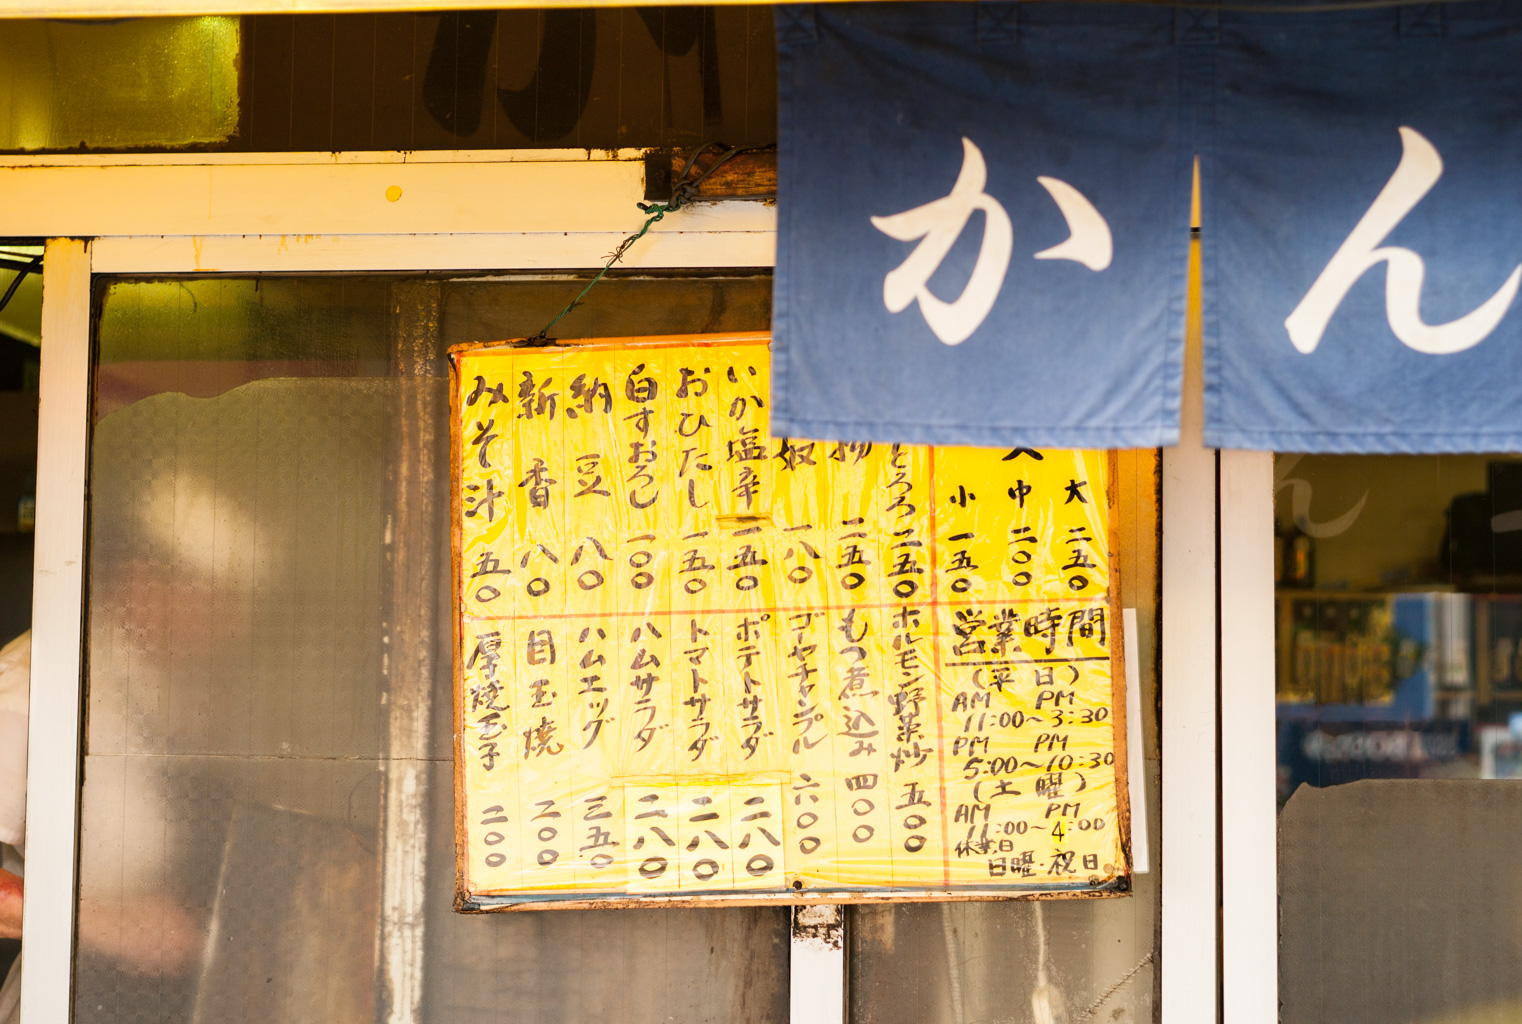 かん
大 二五〇
中 二〇〇
小 一五〇
とろろ 二五〇
二五〇
奴 一八〇
いか塩辛 一五〇
おひたし 一五〇
白すおろし 一〇〇
納豆 八〇
新香 八〇
みそ汁 五〇
ホルモン野菜炒 五〇〇
もつ煮込み 四〇〇
ゴーヤチャンプル 六〇〇
ポテトサラダ 二八〇
トマトサラダ 二八〇
ハムサラダ 二八〇
ハムエッグ 三五〇
目玉焼 二〇〇
厚焼玉子 二〇〇
営業時間
(平日)
AM PM
11:00~3:30
PM PM
5:00~10:30
(土曜)
AM PM
11:00~4:00
休業日
日曜・祝日